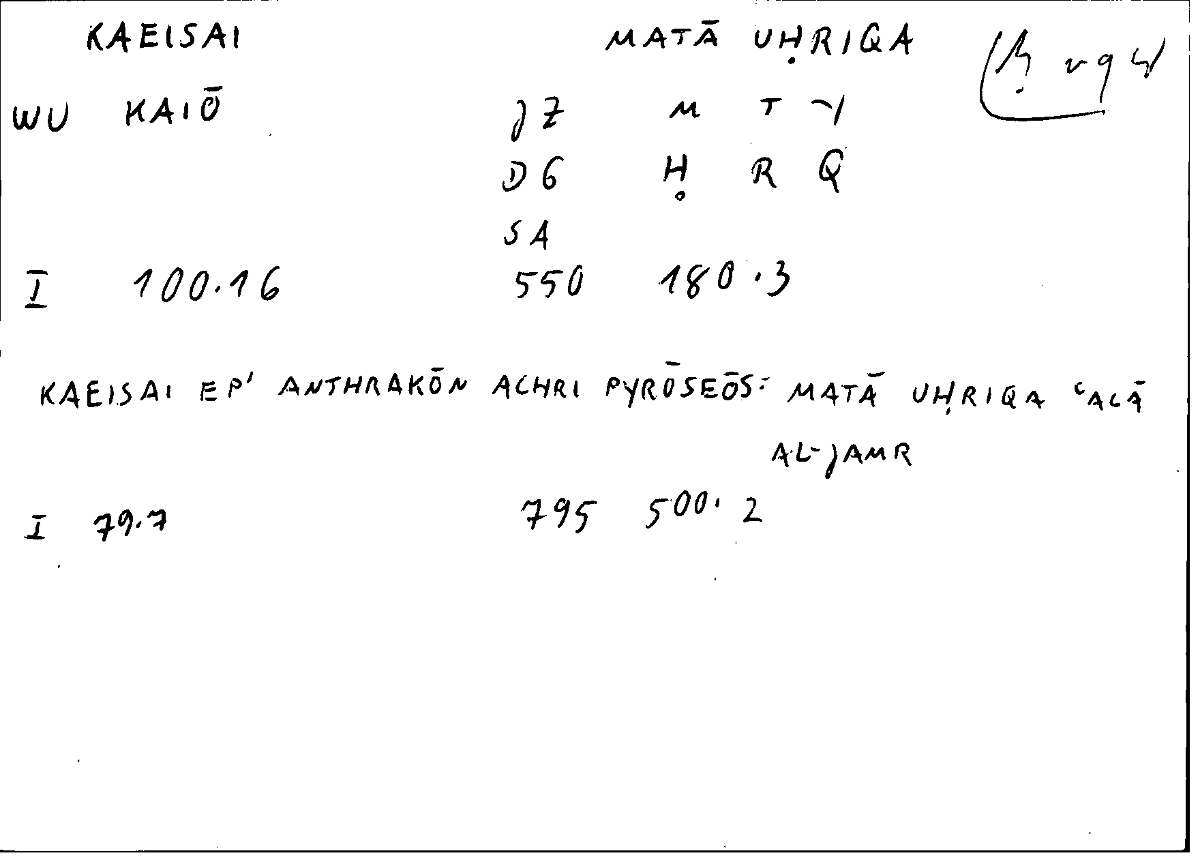 KAEISAI MATĀ UḤRIQA
WU KAIŌ JZ M T Y
DG Ḥ R Q
SA
I 100.16 550 180.3
KAEISAI EP' ANTHRAKŌN ACHRI PYRŌSEŌS: MATĀ UḤRIQA ʿALĀ
AL-JAMR
I 79.7 795 500.2